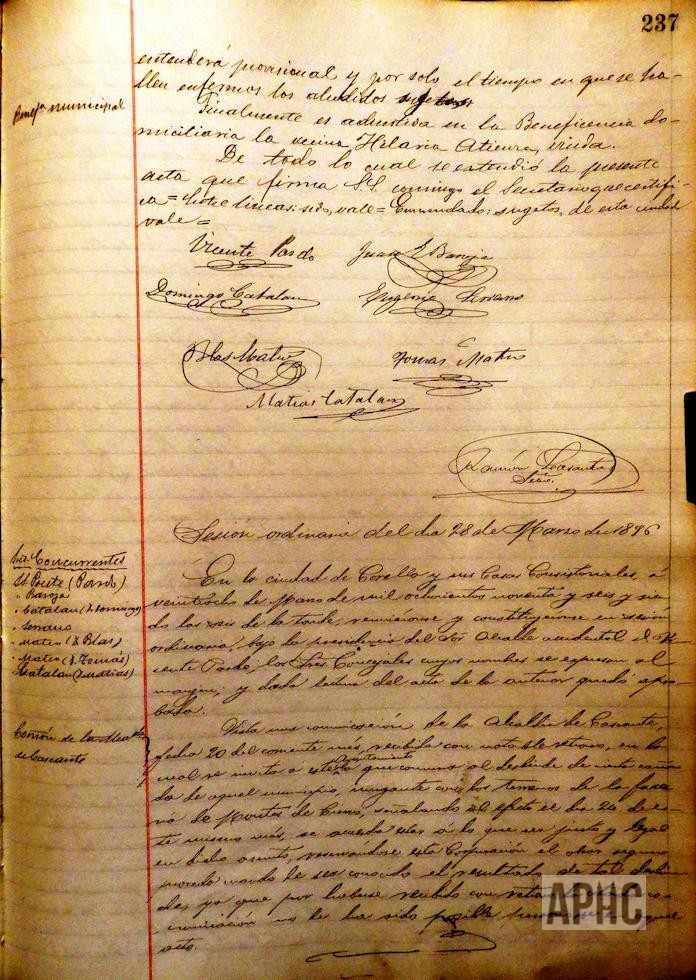 237
entenderá provisional y por solo el tiempo en que se ha-
llen enfermos los aludidos sugetos
Benefª municipal
Finalmente es admitida en la Beneficencia do-
miciliaria la vecina Hilaria Atienza, viuda.
De todo lo cual se extendió la presente
acta que firma S.S. conmigo el Secretario que certifi-
ca = Entre lineas: sido, vale = Enmendado: sugetos, de esta ciudad
vale =
Vicente Pardo
Domingo Catalan
Eugenio Serrano
Blas Mateo
Tomas Mateo
Matias Catalan
Ramón
Secrio.
Sesión ordinaria del dia 28 de Marzo de 1896
Sres. Concurrentes
Sr. Pnte (Pardo)
" Baroja
" Catalan (D. Domingo)
" Serrano
" Mateo (D. Blas)
" Mateo (D. Tomás)
Catalan (D. Matias)
En la ciudad de Corella y sus Casas Consistoriales, á
veintiocho de Marzo de mil ochocientos noventa y seis y sien-
do las seis de la tarde, reunieronse y constituyeronse en sesión
ordinaria, bajo la presidencia del Sor. Alcalde accidental D. Vi-
cente Pardo, los Sres Concejales cuyos nombres se expresan al
margen, y dada lectura del acta de la anterior quedó apro-
bada.
Comón de la Alcaldª
de Cascante
Vista una comunicación de la Alcaldia de Cascante,
fecha 20 del corriente mes, recibida con notable retraso, en la
cual se invita á este Ayuntamiento que concurra al deslinde de cierta caña-
da de aquel municipio, mugante con los terrenos de la face-
ria de Montes de Cierzo, señalando al efecto el dia 24 de es-
te mismo mes, se acuerda estar á lo que sea justo y legal
en dicho asunto, reservandose esta Corporación el obrar segun
proceda cuando le sea conocido el resultado de tal deslin-
de, ya que por haberse recibido con retraso la co-
municación no le ha sido posible aquel
acto.
APHC